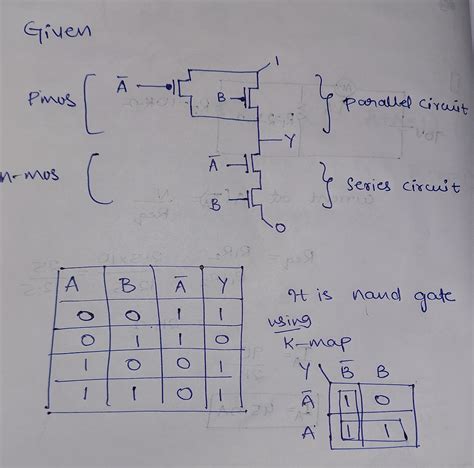 Given
1
Ā
Pmos
B
parallel circuit
Y
Ā
n-mos
B
series circuit
0
A B Ā Y
0 0 1 1
0 1 1 0
1 0 0 1
1 1 0 1
It is nand gate
using
K-map
Y B̄ B
Ā 1 0
A 1 1